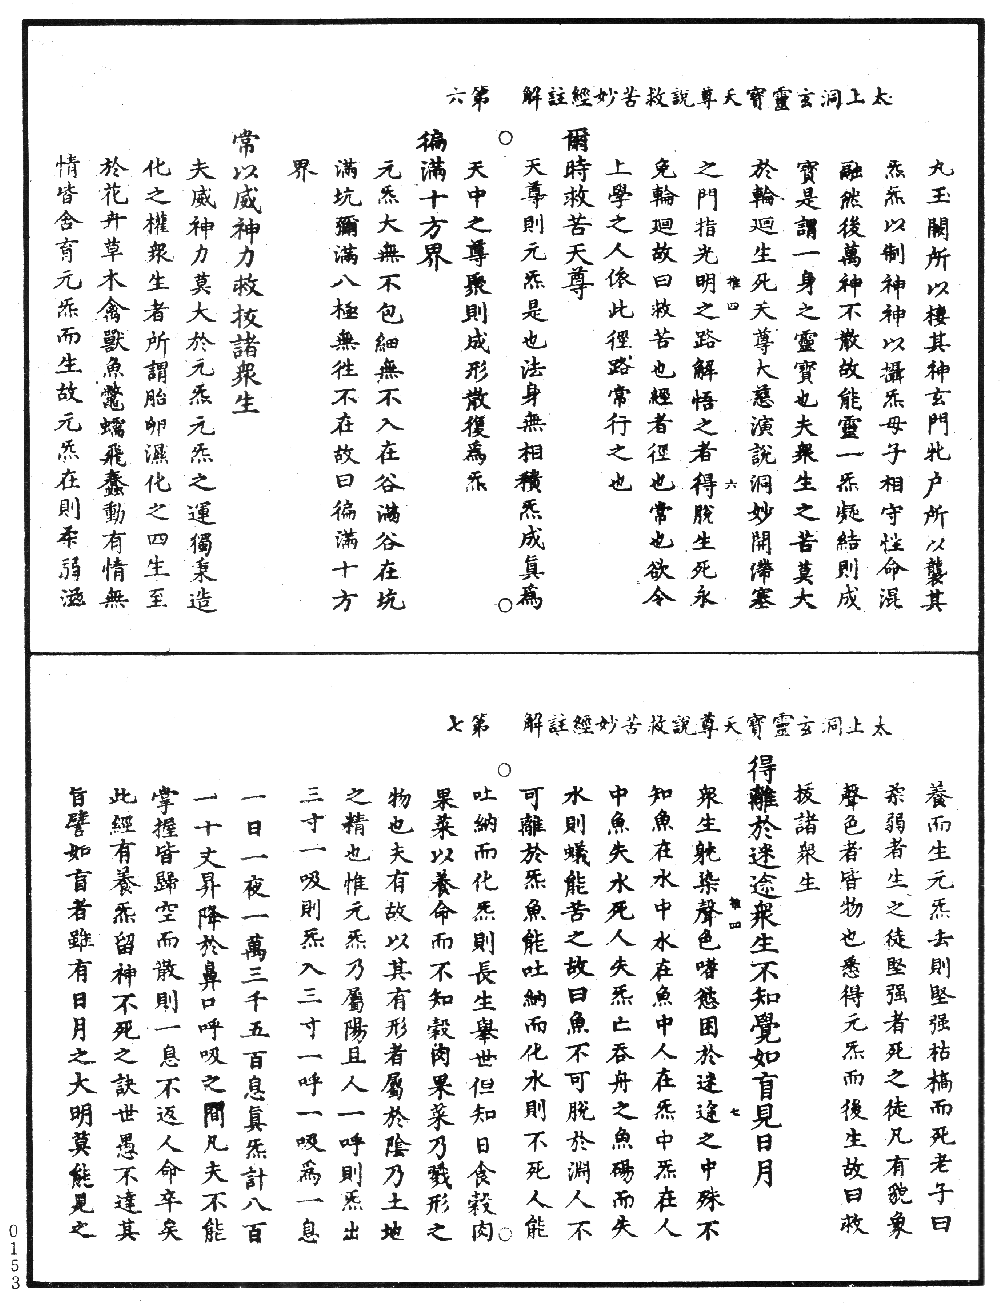 太上洞玄靈寶天尊說救苦妙經註解　第六
丸玉闕所以棲其神玄門牝户所以襲其
炁炁以制神神以攝炁母子相守性命混
融然後萬神不散故能靈一炁凝結則成
寶是謂一身之靈寶也夫衆生之苦莫大
於輪廻生死天尊大慈演說洞妙開滯塞
之門指光明之路解悟之者得脫生死永
免輪廻故曰救苦也經者徑也常也欲令
上學之人依此徑路常行之也
爾時救苦天尊
天尊則元炁是也法身無相積炁成真爲
天中之尊聚則成形散復爲炁
徧滿十方界
元炁大無不包細無不入在谷滿谷在坑
滿坑彌滿八極無徃不在故曰徧滿十方
界
常以威神力救拔諸衆生
夫威神力莫大於元炁元炁之運獨秉造
化之權衆生者所謂胎卵濕化之四生至
於花卉草木禽獸魚鼈蠕飛蠢動有情無
情皆含育元炁而生故元炁在則柔弱涵
太上洞玄靈寶天尊說救苦妙經註解　第七
養而生元炁去則堅强枯槁而死老子曰
柔弱者生之徒堅强者死之徒凡有貌象
聲色者皆物也悉得元炁而後生故曰救
拔諸衆生
得離於迷途衆生不知覺如盲見日月
衆生躭染聲色嗜慾困於迷途之中殊不
知魚在水中水在魚中人在炁中炁在人
中魚失水死人失炁亡吞舟之魚碭而失
水則蟻能苦之故曰魚不可脫於淵人不
可離於炁魚能吐納而化水則不死人能
吐納而化炁則長生舉世但知日食穀肉
果菜以養命而不知穀肉果菜乃戮形之
物也夫有故以其有形者屬於陰乃土地
之精也惟元炁乃屬陽且人一呼則炁出
三寸一吸則炁入三寸一呼一吸爲一息
一日一夜一萬三千五百息真炁計八百
一十丈昇降於鼻口呼吸之間凡夫不能
掌握皆歸空而散則一息不返人命卒矣
此經有養炁留神不死之訣世愚不達其
旨譬如盲者雖有日月之大明莫能見之
0153